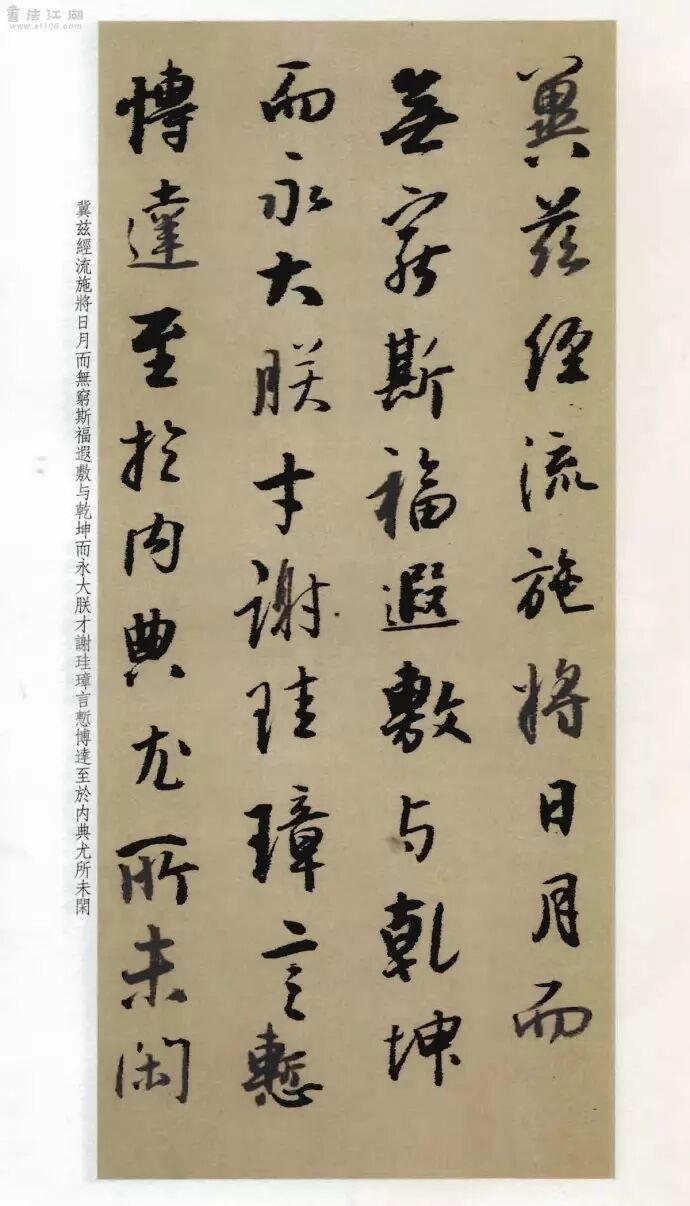 冀茲經流施將日月而
無窮斯福遐敷与乾坤
而永大朕才謝珪璋言慙
博達至於内典尤所未閑
冀茲經流施將日月而無窮斯福遐敷与乾坤而永大朕才謝珪璋言慙博達至於内典尤所未閑
書法江湖